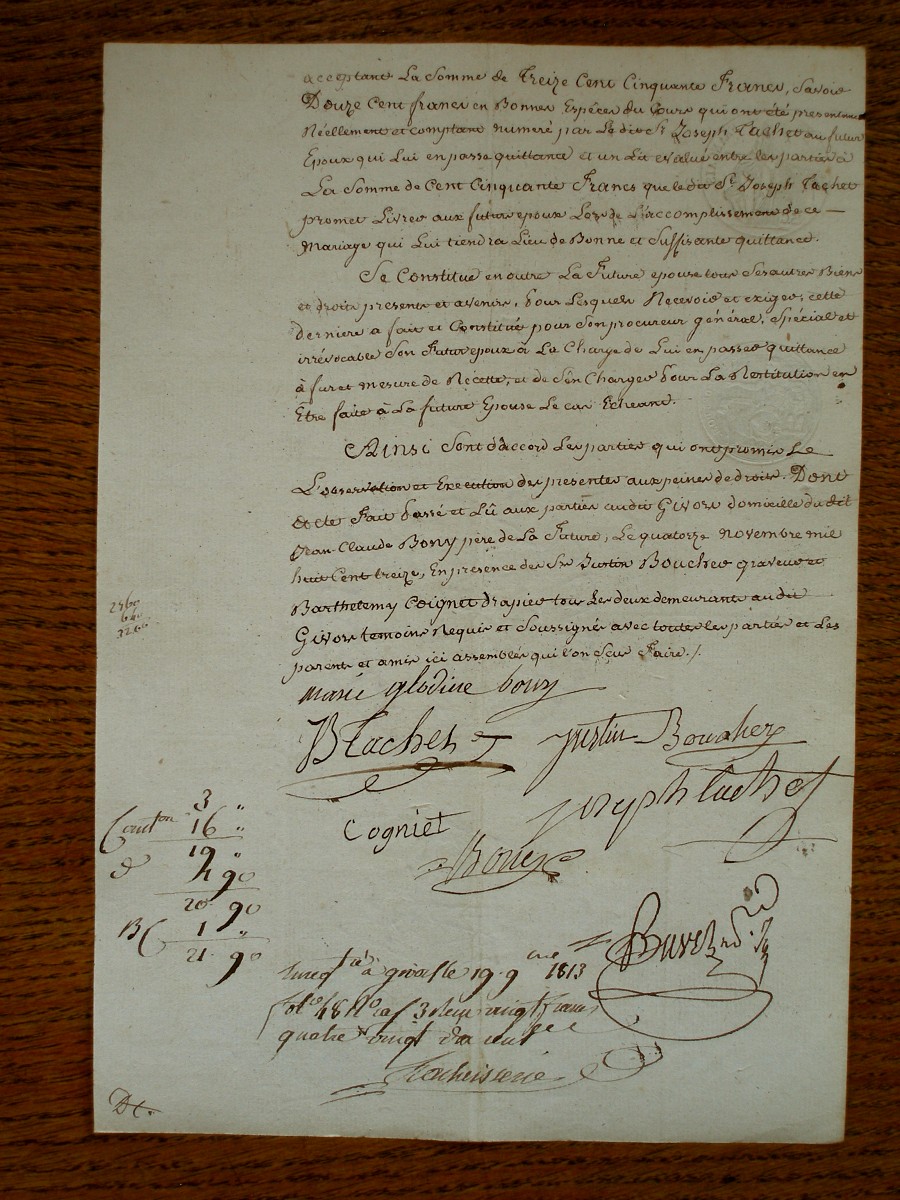 acceptant La Somme de Treize Cent Cinquante Francs, Savoir
Douze Cent francs en Bonnes Espéces du Cours qui ont été presentement
Réellement et comptant numeré par Le dit Sr. Joseph Tachet au futur
Epoux qui Lui en passe quittance et un Lit evalué entre les parties à
La Somme de Cent Cinquante Francs que le dit Sr. Joseph Tachet
promet Livrer aux futurs epoux Lors de L'accomplissement de ce
Mariage qui Lui tiendra Lieu de Bonne et Suffisante quittance.
Se Constitue en outre La Future epouse tous Ses autres Biens
et droits presents et avenir, pour Lesquels Recevoir et exiger, cette
derniere a fait et Constitué pour Son procureur général, Spécial et
irrévocable Son Futur epoux à La Charge de Lui en passer quittance
à fur et mesure de Recette, et de S'en Charger pour La Restitution en
Etre faite à La future Epouse Le cas Echeant.
Ainsi Sont d'accord Les parties qui ont promis Le
L'observation et Execution des presentes aux peines de droits. Dont
acte Fait passé et Lû aux parties audit Givors domicille du dit
Jean Claude Bony père de La Future, Le quatorze novembre mil
huit Cent treize, En presence des Srs Justin Boucher graveur et
Barthelemy Coignet drapier tous Les deux demeurants au dit
Givors temoins Requis et Soussignés avec toutes les parties et Les
parents et amis ici assemblés qui l'on Sçus Faire./.
marie glodine bony
B Tachet justin Boucher
Cogniet joseph tachet
Bony
3 "
16 "
19 "
1 90
20 90
1 "
21. 90
19. 9bre 1813
quatre vingt